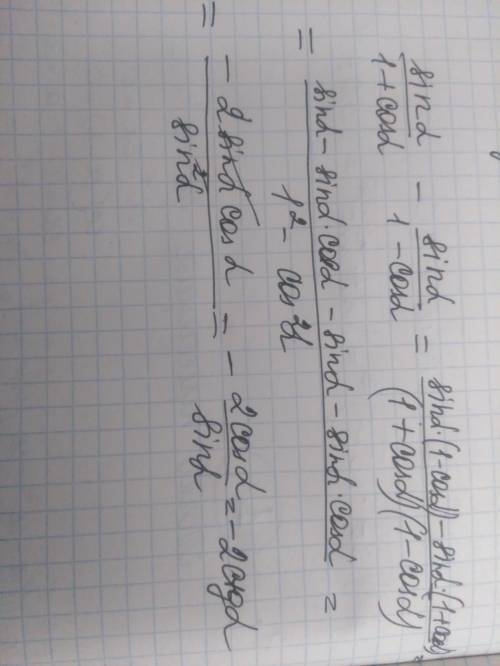 sinα/(1+cosα) - sinα/(1-cosα) = (sinα·(1-cosα) - sinα·(1+cosα))/((1+cosα)(1-cosα)) =
= (sinα - sinα·cosα - sinα - sinα·cosα)/(1² - cos²α) =
= (-2sinα cosα)/(sin²α) = - 2cosα/sinα = -2ctgα